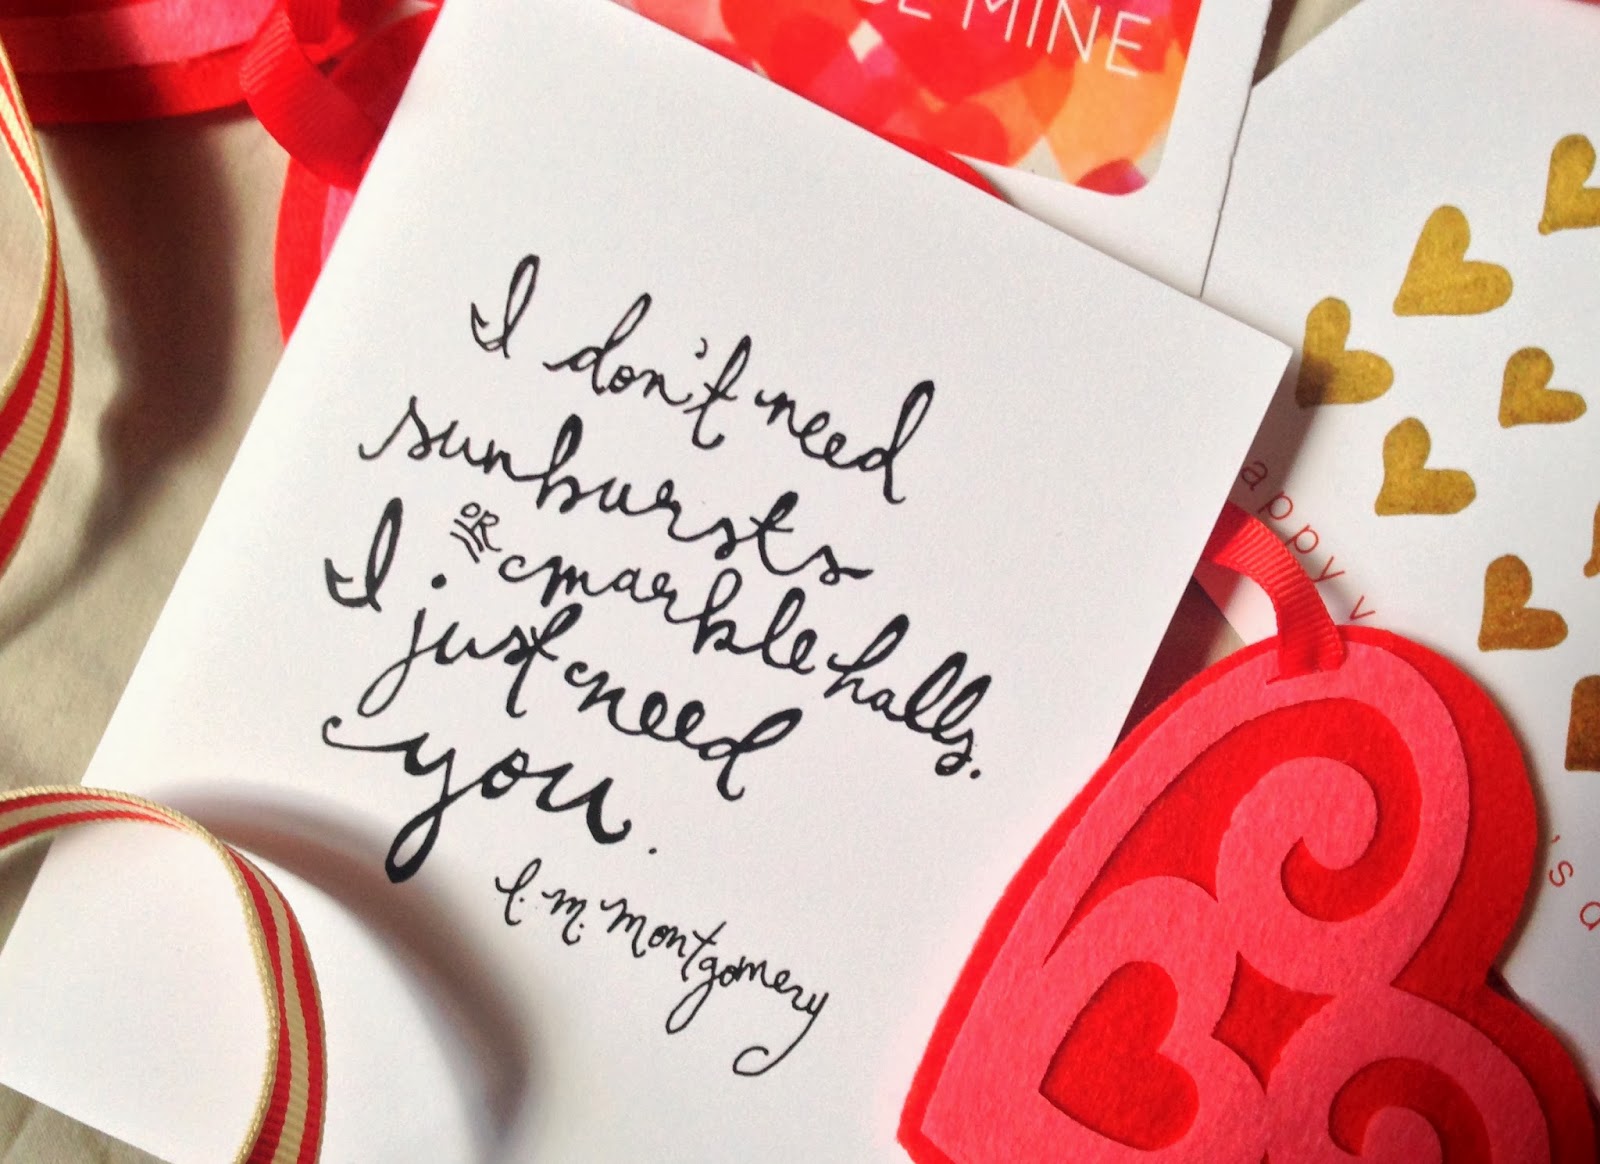 BE MINE
I don't need
sunbursts
OR marble halls.
I just need
you.
L. M. Montgomery
appy v
's d